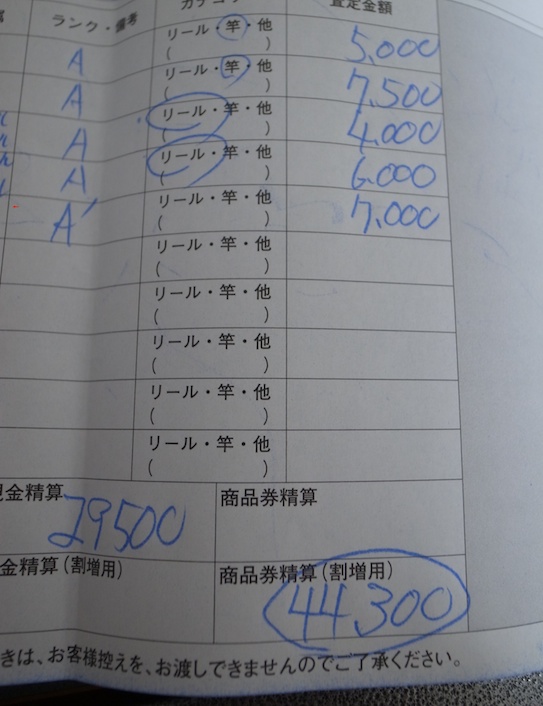 ランク・備考 カテゴリ 査定金額
A リール・竿・他 ( ) 5,000
A リール・竿・他 ( ) 7,500
A リール・竿・他 ( ) 4,000
A リール・竿・他 ( ) 6,000
A' リール・竿・他 ( ) 7,000
リール・竿・他 ( )
リール・竿・他 ( )
リール・竿・他 ( )
リール・竿・他 ( )
リール・竿・他 ( )
金精算 29500 商品券精算
金精算(割増用) 商品券精算(割増用) 44,300
きは、お客様控えを、お渡しできませんのでご了承ください。